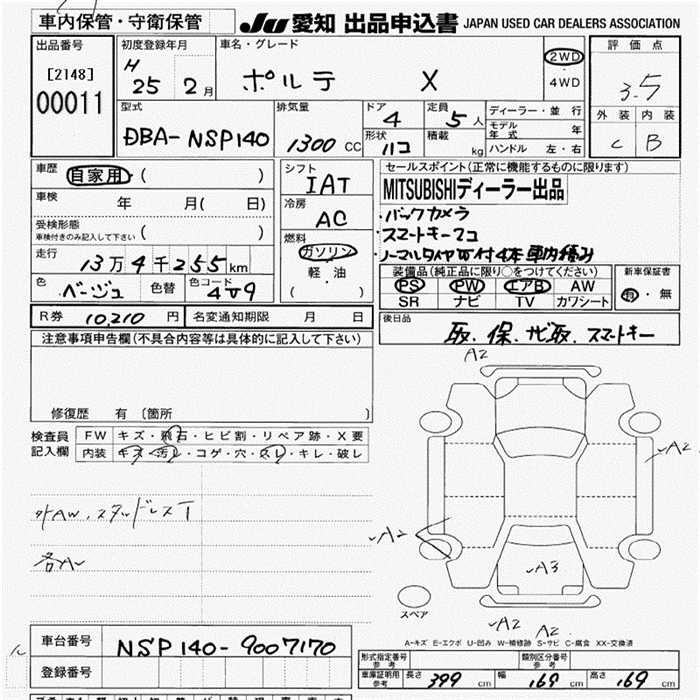 車内保管・守衛保管
JU 愛知 出品申込書 JAPAN USED CAR DEALERS ASSOCIATION
出品番号 [2148] 00011
初度登録年月 H 25 2月
車名・グレード ポルテ X
2WD ・ 4WD
評価点 3.5
外装 C 内装 B
型式 DBA-NSP140
排気量 1300 CC
ドア 4 形状 ハコ
定員 5人 積載 kg
ディーラー・並行
モデル年式 年
ハンドル 左・右
車歴 自家用 ( )
車検 年 月( 日)
受検形態 車検付きのみ記入して下さい ( )
走行 13万4千255km
色 ベージュ 色替 色コード 4V9
シフト IAT
冷房 AC
燃料 ガソリン
軽・油
( )
セールスポイント(正常に機能するものに限ります)
MITSUBISHIディーラー出品
・バックカメラ
・スマートキー2コ
・ノーマルタイヤ 4本 車内積み
装備品(純正品に限り○をつけてください) 新車保証書
PS PW エアB AW 有・無
SR ナビ TV カワシート
R券 10,210 円 名変通知期限 月 日
後日品 取、保、ナビ取、スマートキー
注意事項申告欄(不具合内容等は具体的に記入して下さい)
修復歴 有 〔箇所 〕
検査員記入欄 FW キズ・飛石・ヒビ割・リペア跡・X要
内装 キズ・汚れ・コゲ・穴・スレ・キレ・破レ
外AW、スタッドレスT
各A
A2
A2
A2
A3
A2
A2
スペア
A-キズ E-エクボ U-凹み W-補修跡 S-サビ C-腐食 XX-交換済
車台番号 NSP140-9007170
登録番号
形式指定番号 参考 類別区分番号 参考
車庫証明用 参考 長さ 399 cm 幅 169 cm 高さ 169 cm